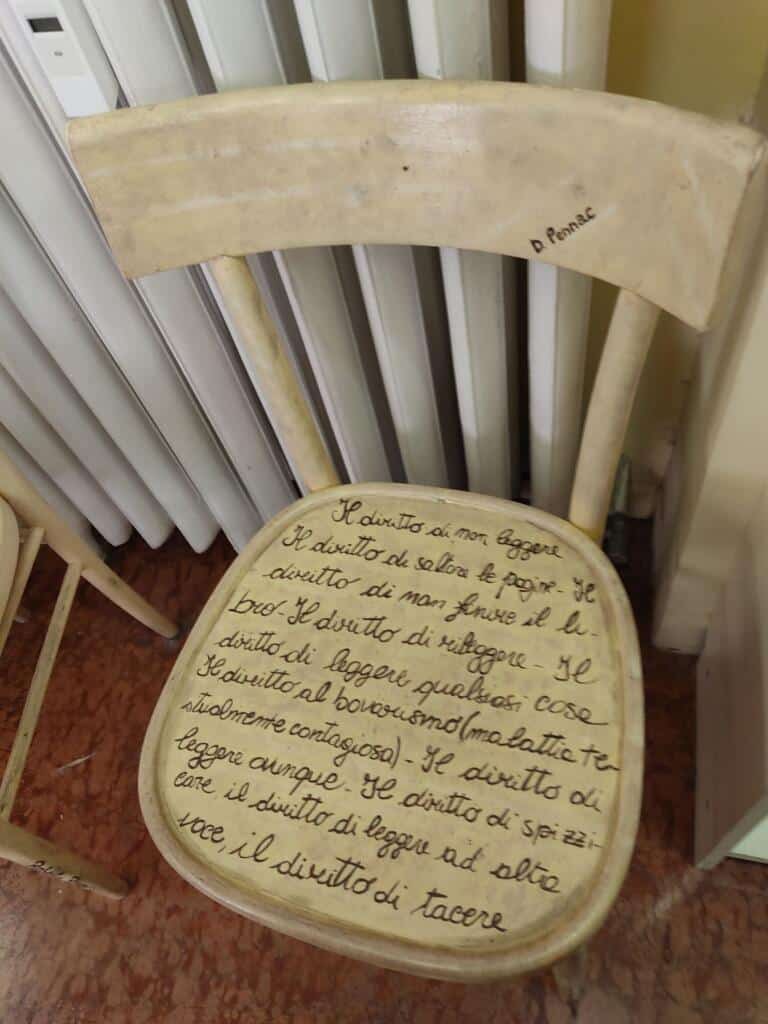 D. Pennac
Il diritto di non leggere
Il diritto di saltare le pagine - Il
diritto di non finire il li-
bro - Il diritto di rileggere - Il
diritto di leggere qualsiasi cosa
Il diritto al bovarismo (malattia te-
stualmente contagiosa) - Il diritto di
leggere ovunque - Il diritto di spizzi-
care, il diritto di leggere ad alta
voce, il diritto di tacere